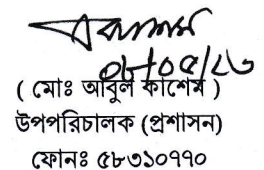 ০৮/০৫/২৩
( মোঃ আবুল কাশেম )
উপপরিচালক (প্রশাসন)
ফোনঃ ৫৮৩১০৭৭০